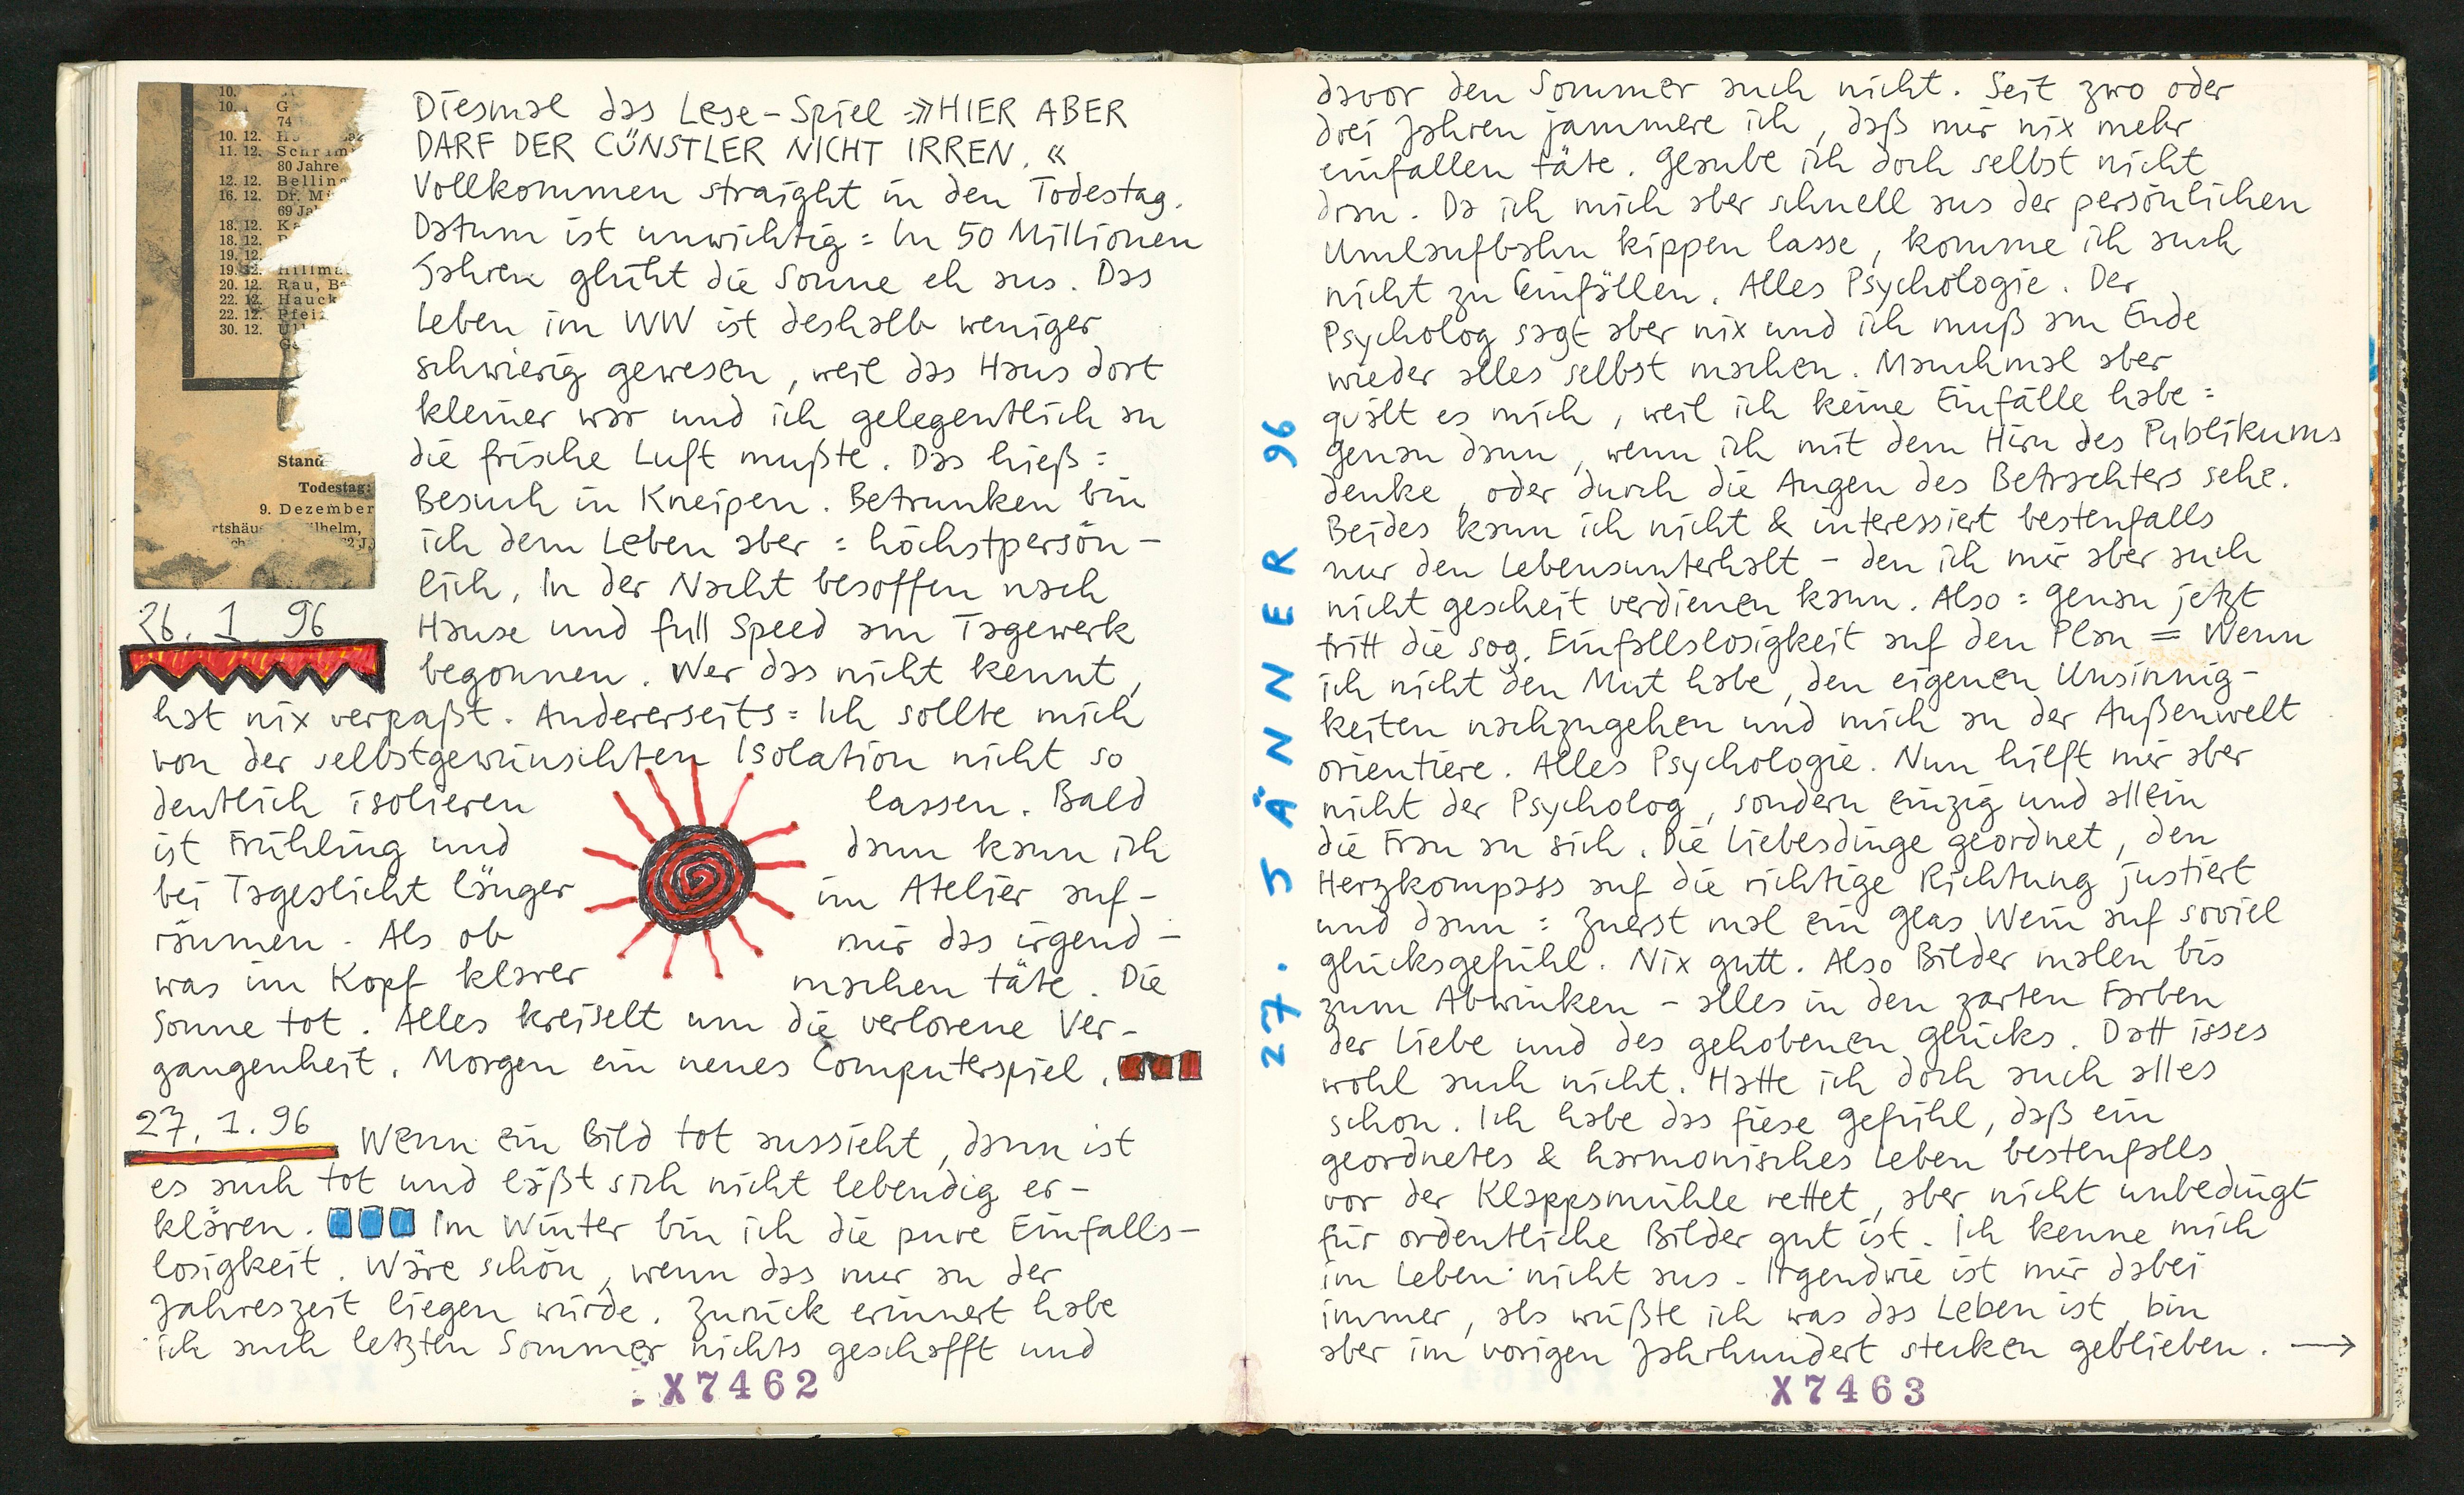 10.
10. G
74
10. 12. H
11. 12. Schrim
80 Jahre
12. 12. Belling
16. 12. Dr. M
69 Jah
18. 12. Ka
18. 12.
19. 12.
19. 12. Hillma
20. 12. Rau, Ba
22. 12. Hauck
22. 12. Pfei
30. 12. Ull
Ge
Stand
Todestag:
9. Dezember
rtshäus ilhelm,
2 J.)
26. 1. 96
Diesmal das Lese-Spiel =»HIER ABER
DARF DER CÜNSTLER NICHT IRREN.«
Vollkommen straight in den Todestag.
Datum ist unwichtig = In 50 Millionen
Jahren glüht die Sonne eh aus. Das
Leben im WW ist deshalb weniger
schwierig gewesen, weil das Haus dort
kleiner war und ich gelegentlich an
die frische Luft mußte. Das hieß =
Besuch in Kneipen. Betrunken bin
ich dem Leben aber = höchstpersön-
lich. In der Nacht besoffen nach
Hause und full Speed am Tagewerk
begonnen. Wer das nicht kennt,
hat nix verpaßt. Andererseits = Ich sollte mich
von der selbstgewünschten Isolation nicht so
deutlich isolieren lassen. Bald
ist Frühling und dann kann ich
bei Tageslicht länger im Atelier auf-
räumen. Als ob mir das irgend-
was im Kopf klarer machen täte. Die
Sonne tot. Alles kreiselt um die verlorene Ver-
gangenheit. Morgen ein neues Computerspiel.
27. 1. 96
Wenn ein Bild tot aussieht, dann ist
es auch tot und läßt sich nicht lebendig er-
klären. Im Winter bin ich die pure Einfalls-
losigkeit. Wäre schön, wenn das nur an der
Jahreszeit liegen würde. Zurück erinnert habe
ich auch letzten Sommer nichts geschafft und
X7462
27. JÄNNER 96
davor den Sommer auch nicht. Seit zwo oder
drei Jahren jammere ich, daß mir nix mehr
einfallen täte. Glaube ich doch selbst nicht
dran. Da ich mich aber schnell aus der persönlichen
Umlaufbahn kippen lasse, komme ich auch
nicht zu Einfällen. Alles Psychologie. Der
Psycholog sagt aber nix und ich muß am Ende
wieder alles selbst machen. Manchmal aber
quält es mich, weil ich keine Einfälle habe =
genau dann, wenn ich mit dem Hirn des Publikums
denke, oder durch die Augen des Betrachters sehe.
Beides kann ich nicht & interessiert bestenfalls
nur den Lebensunterhalt - den ich mir aber auch
nicht gescheit verdienen kann. Also = genau jetzt
tritt die sog. Einfallslosigkeit auf den Plan = Wenn
ich nicht den Mut habe, den eigenen Unsinnig-
keiten nachzugehen und mich an der Außenwelt
orientiere. Alles Psychologie. Nun hilft mir aber
nicht der Psycholog, sondern einzig und allein
die Frau an sich. Die Liebesdinge geordnet, den
Herzkompass auf die richtige Richtung justiert
und dann = Zuerst mal ein Glas Wein auf soviel
Glücksgefühl. Nix gutt. Also Bilder malen bis
zum Abwinken - alles in den zarten Farben
der Liebe und des gehobenen Glücks. Datt isses
wohl auch nicht. Hatte ich doch auch alles
schon. Ich habe das fiese Gefühl, daß ein
geordnetes & harmonisches Leben bestenfalls
vor der Klappsmühle rettet, aber nicht unbedingt
für ordentliche Bilder gut ist. Ich kenne mich
im Leben nicht aus. Irgendwie ist mir dabei
immer, als wüßte ich was das Leben ist, bin
aber im vorigen Jahrhundert stecken geblieben. →
X7463